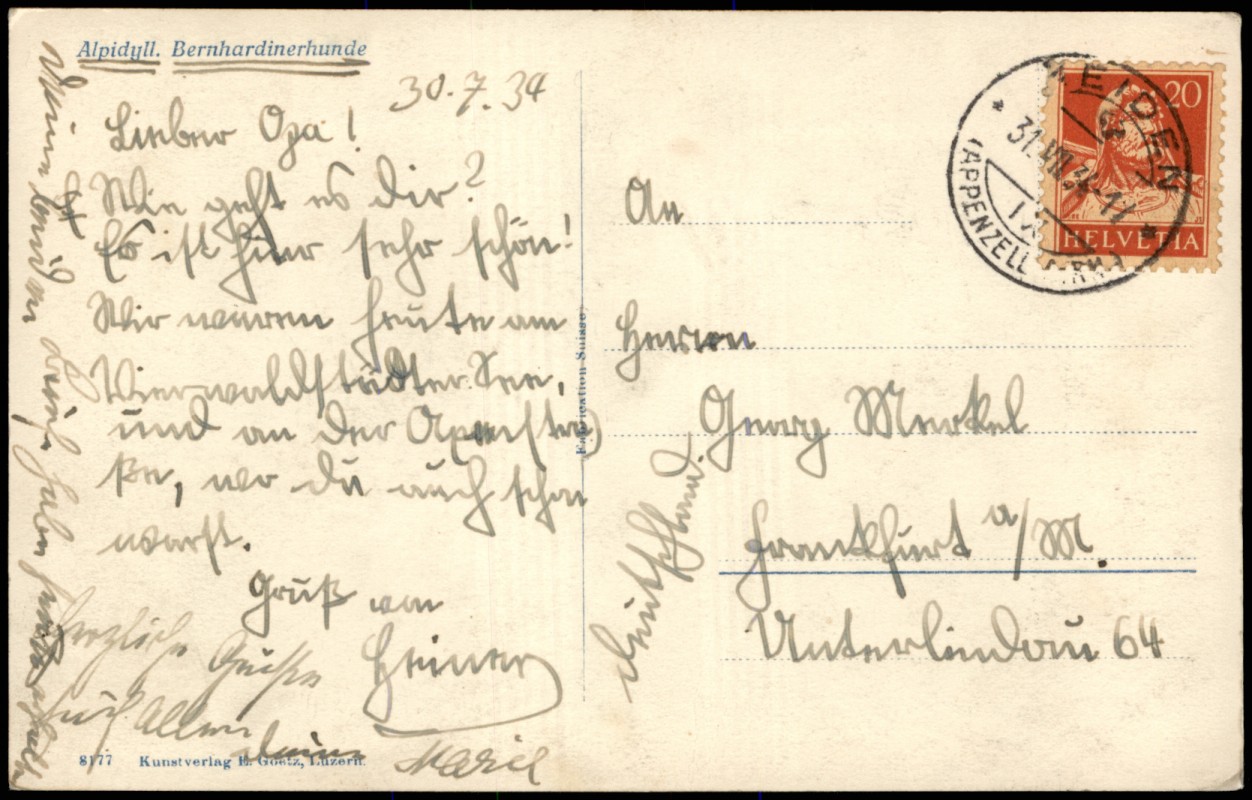 Alpidyll. Bernhardinerhunde
30.7.34
Lieber Opa!
Wie geht es dir?
Es ist hier sehr schön!
Wir waren heute am
Vierwaldstädter See,
und an der Axenstra
ße, wo du auch schon
warst.
Gruß von
Heiner
Herzliche Grüße
Euch Allen
Marie
8177 Kunstverlag E. Goetz, Luzern.
Fabrication Suisse
An
Herrn
Georg Merkel
Frankfurt a/M.
Unterlindau 64
Deutschland
HEIDEN
31.VII.34-11
(APPENZELL A.RH.)
20
HELVETIA